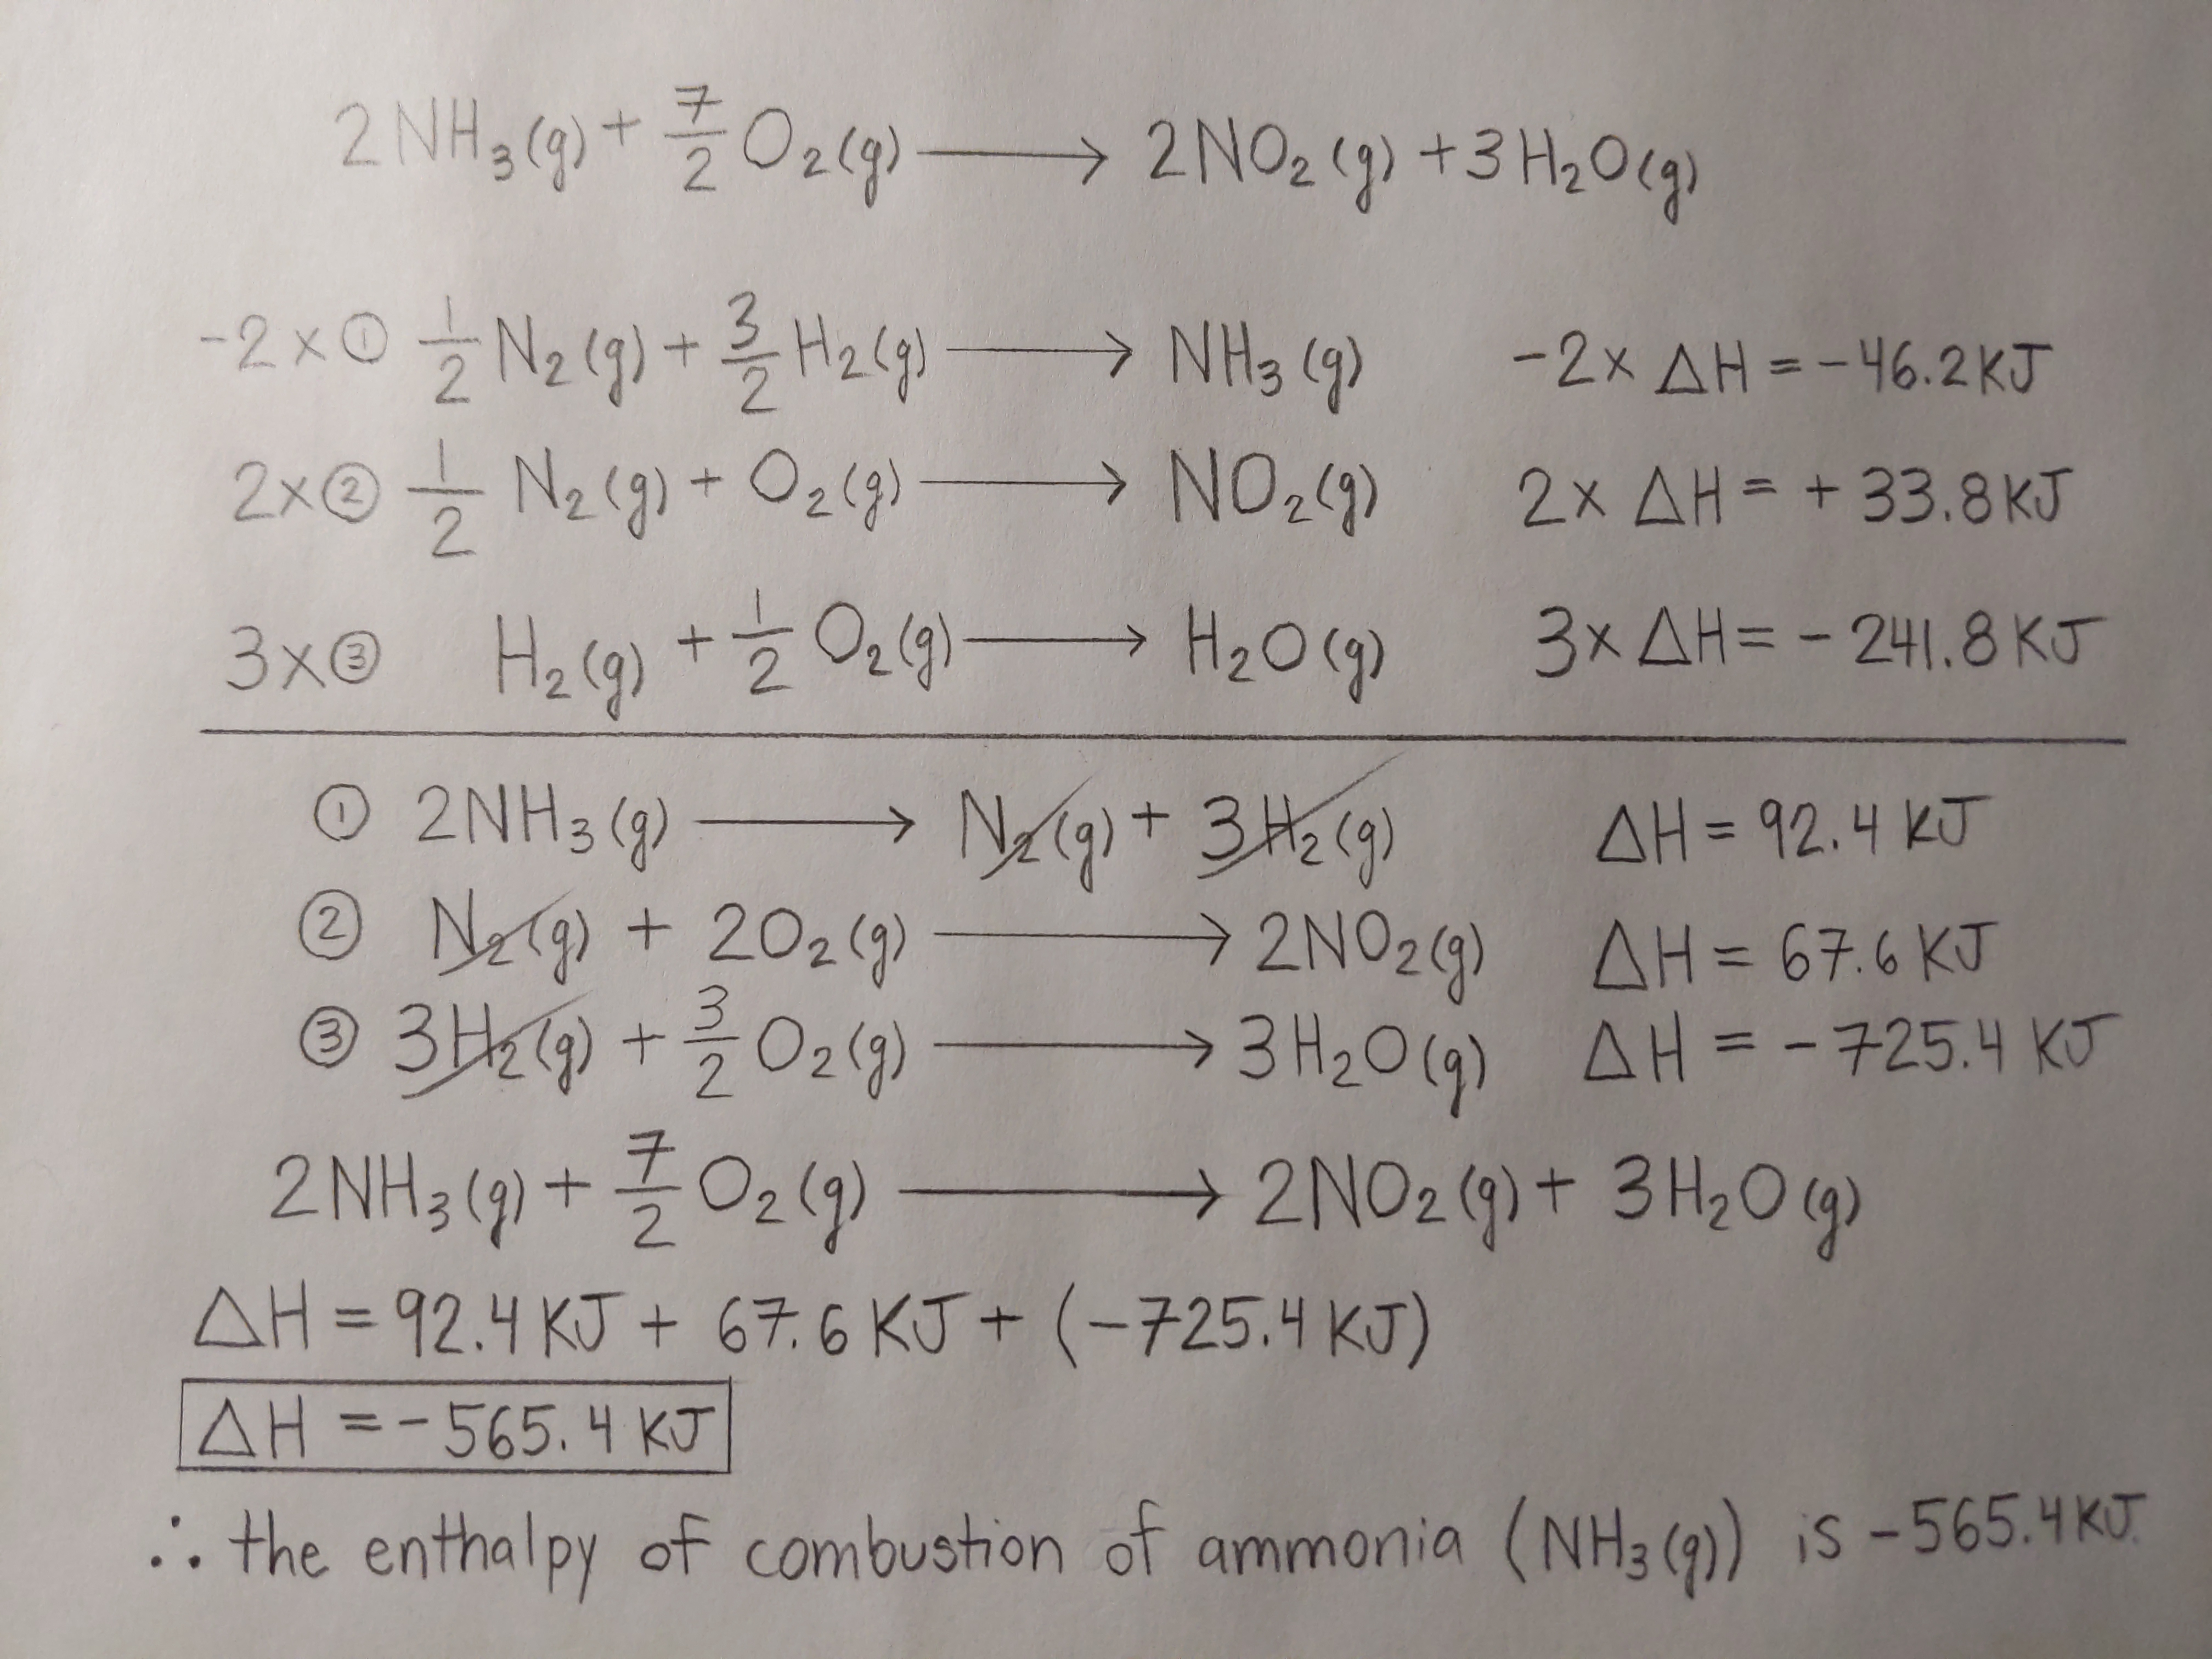 2NH₃(g) + 7/2 O₂(g) ⟶ 2NO₂(g) + 3H₂O(g)
-2x① 1/2 N₂(g) + 3/2 H₂(g) ⟶ NH₃(g) -2x ΔH = -46.2KJ
2x② 1/2 N₂(g) + O₂(g) ⟶ NO₂(g) 2x ΔH = +33.8KJ
3x③ H₂(g) + 1/2 O₂(g) ⟶ H₂O(g) 3x ΔH = -241.8KJ
① 2NH₃(g) ⟶ N₂(g) + 3H₂(g) ΔH = 92.4 KJ
② N₂(g) + 2O₂(g) ⟶ 2NO₂(g) ΔH = 67.6 KJ
③ 3H₂(g) + 3/2 O₂(g) ⟶ 3H₂O(g) ΔH = -725.4 KJ
2NH₃(g) + 7/2 O₂(g) ⟶ 2NO₂(g) + 3H₂O(g)
ΔH = 92.4 KJ + 67.6 KJ + (-725.4 KJ)
ΔH = -565.4 KJ
∴ the enthalpy of combustion of ammonia (NH₃(g)) is -565.4KJ.